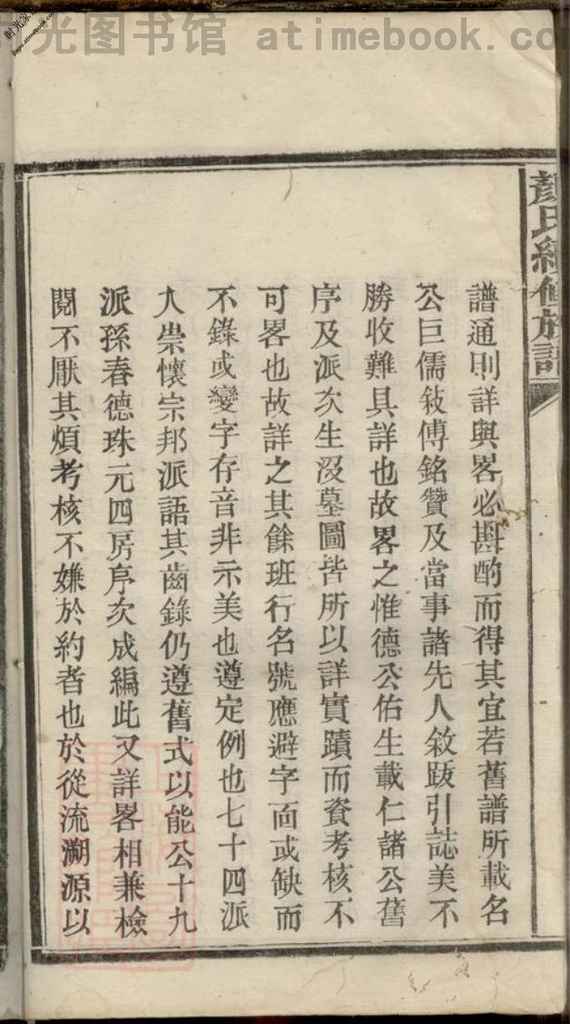 光图书馆 atimebook.co
顏氏續修族譜
譜通則詳與畧必斟酌而得其宜若舊譜所載名
公巨儒敍傳銘贊及當事諸先人敘跋引誌美不
勝收難具詳也故畧之惟德公佑生載仁諸公舊
序及派次生沒墓圖皆所以詳實蹟而資考核不
可畧也故詳之其餘班行名號應避字面或缺而
不錄或變字存音非示美也遵定例也七十四派
人崇懷宗邦派語其齒錄仍遵舊式以能公十九
派孫春德珠元四房序次成編此又詳畧相兼檢
閱不厭其煩考核不嫌於約者也於從流溯源以